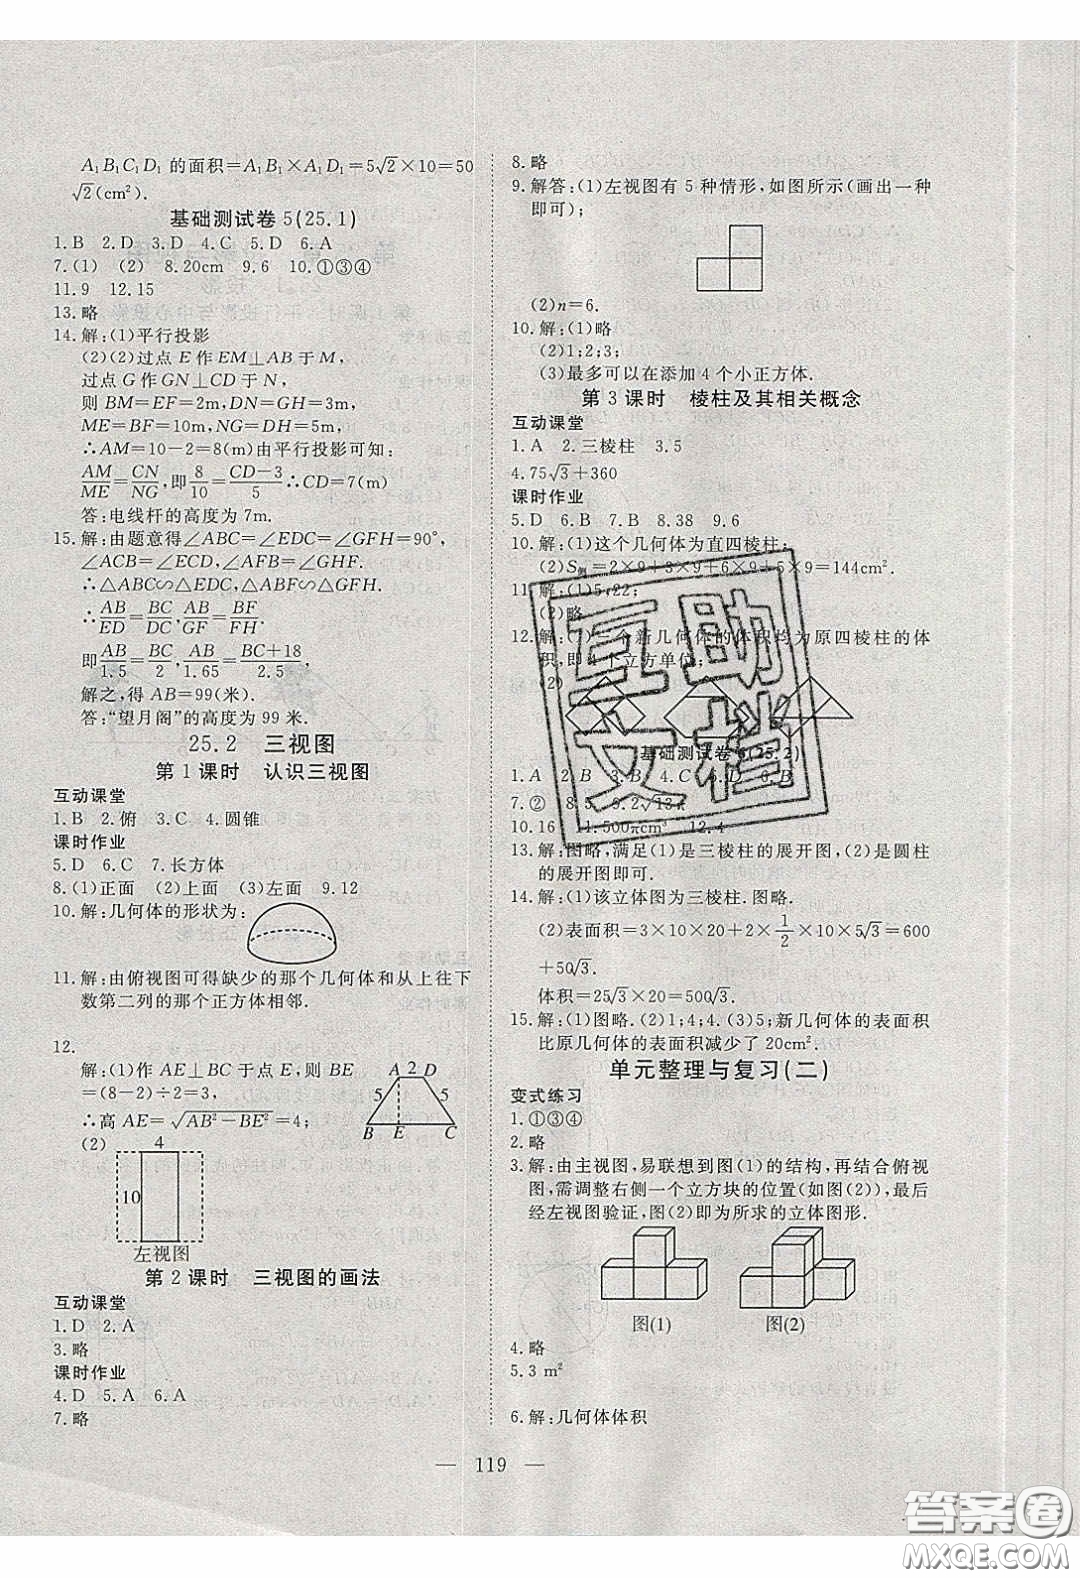 A₁B₁C₁D₁ 的面积=A₁B₁×A₁D₁=5√2×10=50
√2(cm²).
基础测试卷 5(25.1)
1.B 2.D 3.D 4.C 5.D 6.D
7.(1) (2) 8.20cm 9.6 10.①③④
11.9 12.15
13.略
14.解:(1)平行投影
(2)(2)过点 E 作 EM⊥AB 于 M,
过点 G 作 GN⊥CD 于 N,
则 BM=EF=2m,DN=GH=3m,
ME=BF=10m,NG=DH=5m,
∴AM=10-2=8(m)由平行投影可知:
AM/ME=CN/NG,即8/10=(CD-3)/5∴CD=7(m)
答:电线杆的高度为 7m.
15.解:由题意得∠ABC=∠EDC=∠GFH=90°,
∠ACB=∠ECD,∠AFB=∠GHF.
∴△ABC∽△EDC,△ABF∽△GFH.
∴AB/ED=BC/DC,AB/GF=BF/FH
即AB/1.5=BC/2,AB/1.65=(BC+18)/2.5,
解之,得 AB=99(米).
答:“望月阁”的高度为 99 米.
25.2 三视图
第 1 课时 认识三视图
互动课堂
1.B 2.俯 3.C 4.圆锥
课时作业
5.D 6.C 7.长方体
8.(1)正面 (2)上面 (3)左面 9.12
10.解:几何体的形状为:
11.解:由俯视图可得缺少的那个几何体和从上往下
数第二列的那个正方体相邻.
12.
解:(1)作 AE⊥BC 于点 E,则 BE
=(8-2)÷2=3,
∴高 AE=√(AB²-BE²)=4;
A 2 D
5 5
B E C
(2)
4
10
左视图
第 2 课时 三视图的画法
互动课堂
1.D 2.A
3.略
课时作业
4.D 5.A 6.A
7.略
8.略
9.解答:(1)左视图有 5 种情形,如图所示(画出一种
即可);
(2)n=6.
10.解:(1)略
(2)1;2;3;
(3)最多可以在添加 4 个小正方体.
第 3 课时 棱柱及其相关概念
互动课堂
1.A 2.三棱柱 3.5
4.75√3+360
课时作业
5.D 6.B 7.B 8.38 9.6
10.解:(1)这个几何体为直四棱柱;
(2)S侧=2×9+3×9+6×9+5×9=144cm².
11.解:(1)5;22;
(2)略
12.解:(1)三个新几何体的体积均为原四棱柱的体
积,即 4 个立方单位;
(2)
基础测试卷 6(25.2)
1.A 2.B 3.B 4.C 5.D 6.B
7.② 8.5 9.2√13π
10.16 11.500πcm³ 12.4
13.解:图略,满足(1)是三棱柱的展开图,(2)是圆柱
的展开图即可.
14.解:(1)该立体图为三棱柱.图略.
(2)表面积=3×10×20+2×1/2×10×5√3=600
+50√3.
体积=25√3×20=500√3cm².
15.解:(1)图略.(2)1;4;4.(3)5;新几何体的表面积
比原几何体的表面积减少了 20cm².
单元整理与复习(二)
变式练习
1.①③④
2.略
3.解:由主视图,易联想到图(1)的结构,再结合俯视
图,需调整右侧一个立方块的位置(如图(2)),最后
经左视图验证,图(2)即为所求的立体图形.
图(1) 图(2)
4.略
5.3 m²
6.解:几何体体积
— 119 —
互助
文档
答案卷
MXQE.COM